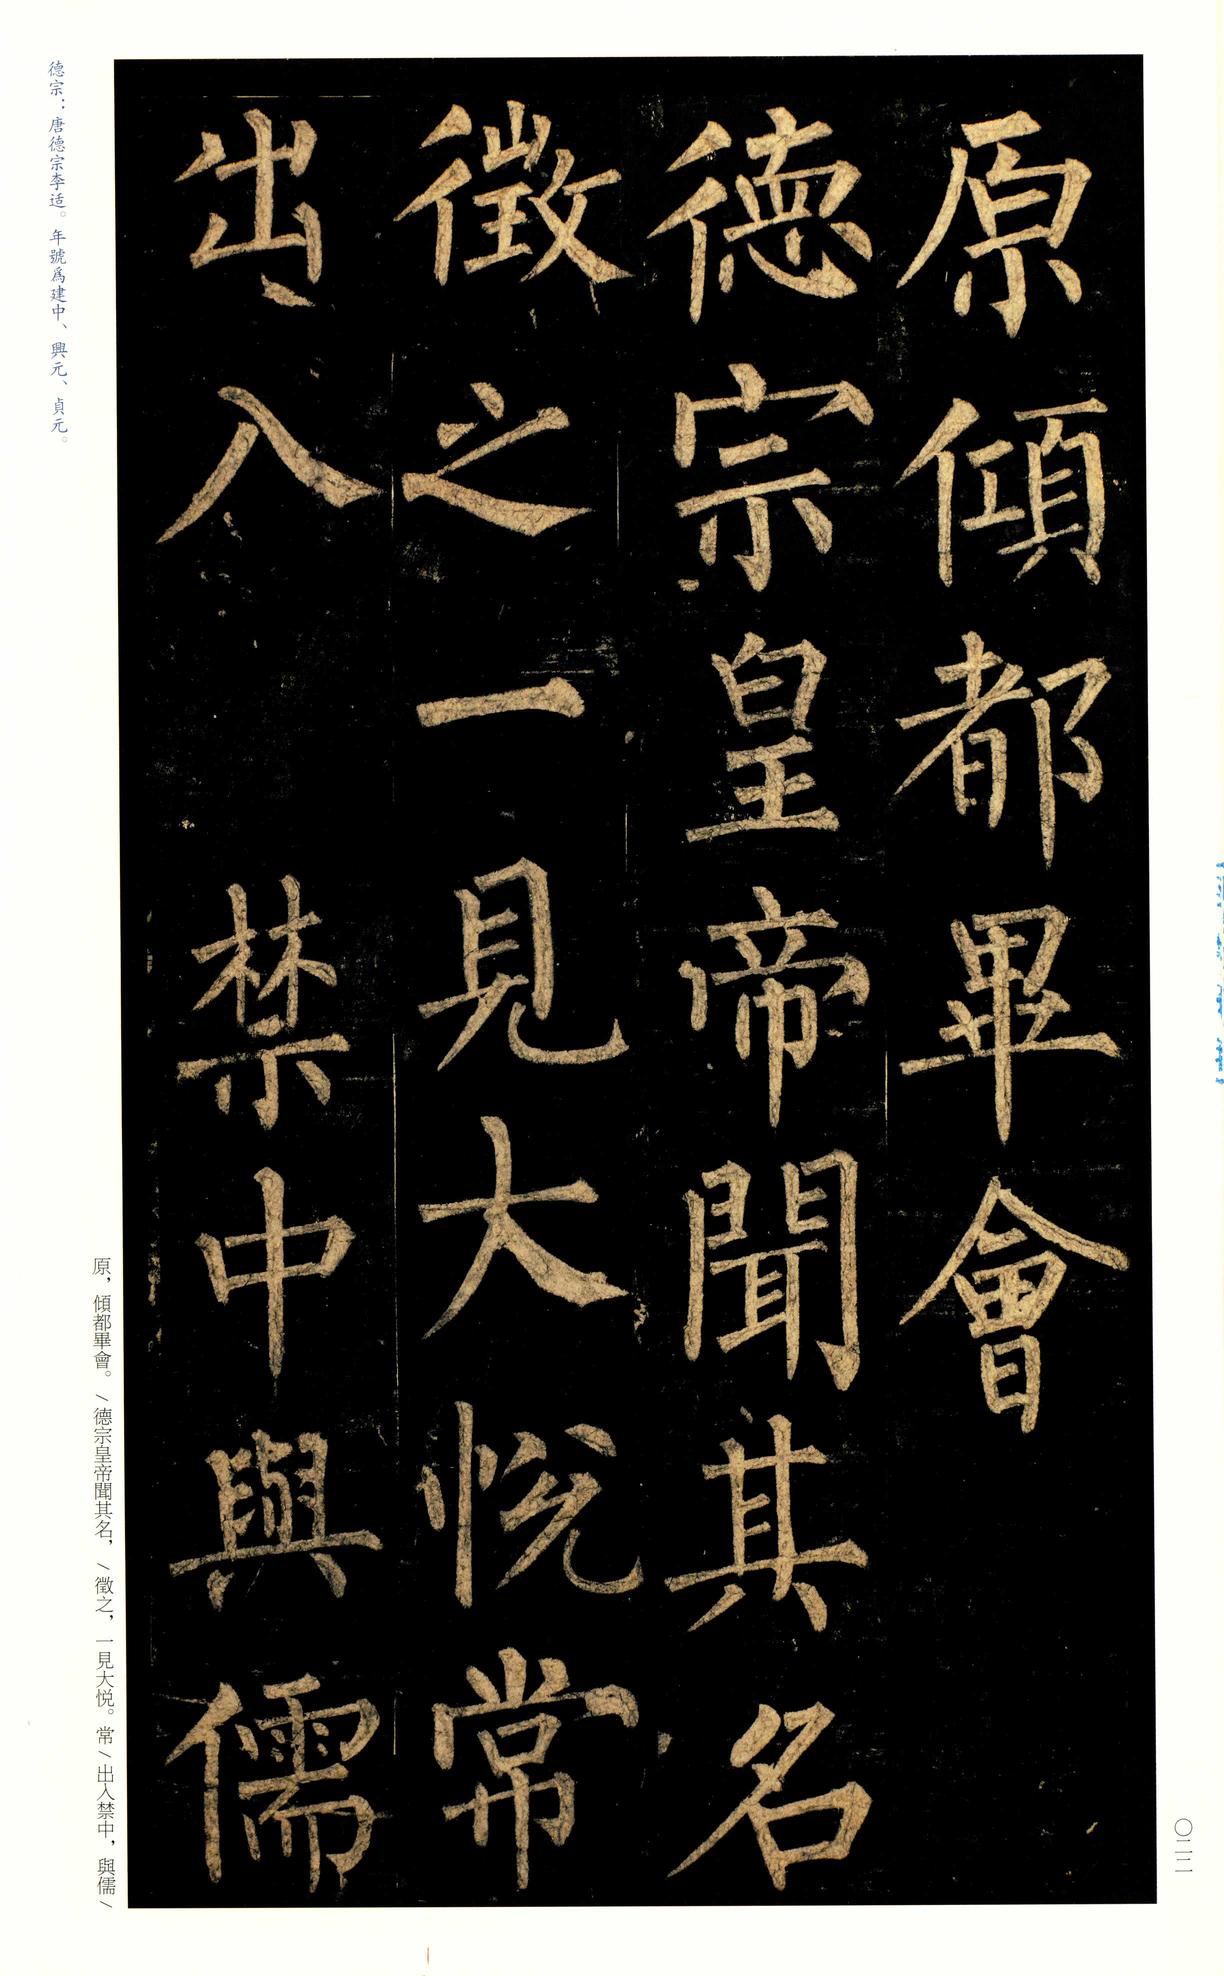 原傾都畢會
德宗皇帝聞其名
徵之一見大悅常
出入禁中與儒
德宗：唐德宗李适。年號爲建中、興元、貞元。
原，傾都畢會。\德宗皇帝聞其名，\徵之，一見大悅。常\出入禁中，與儒\
〇二二